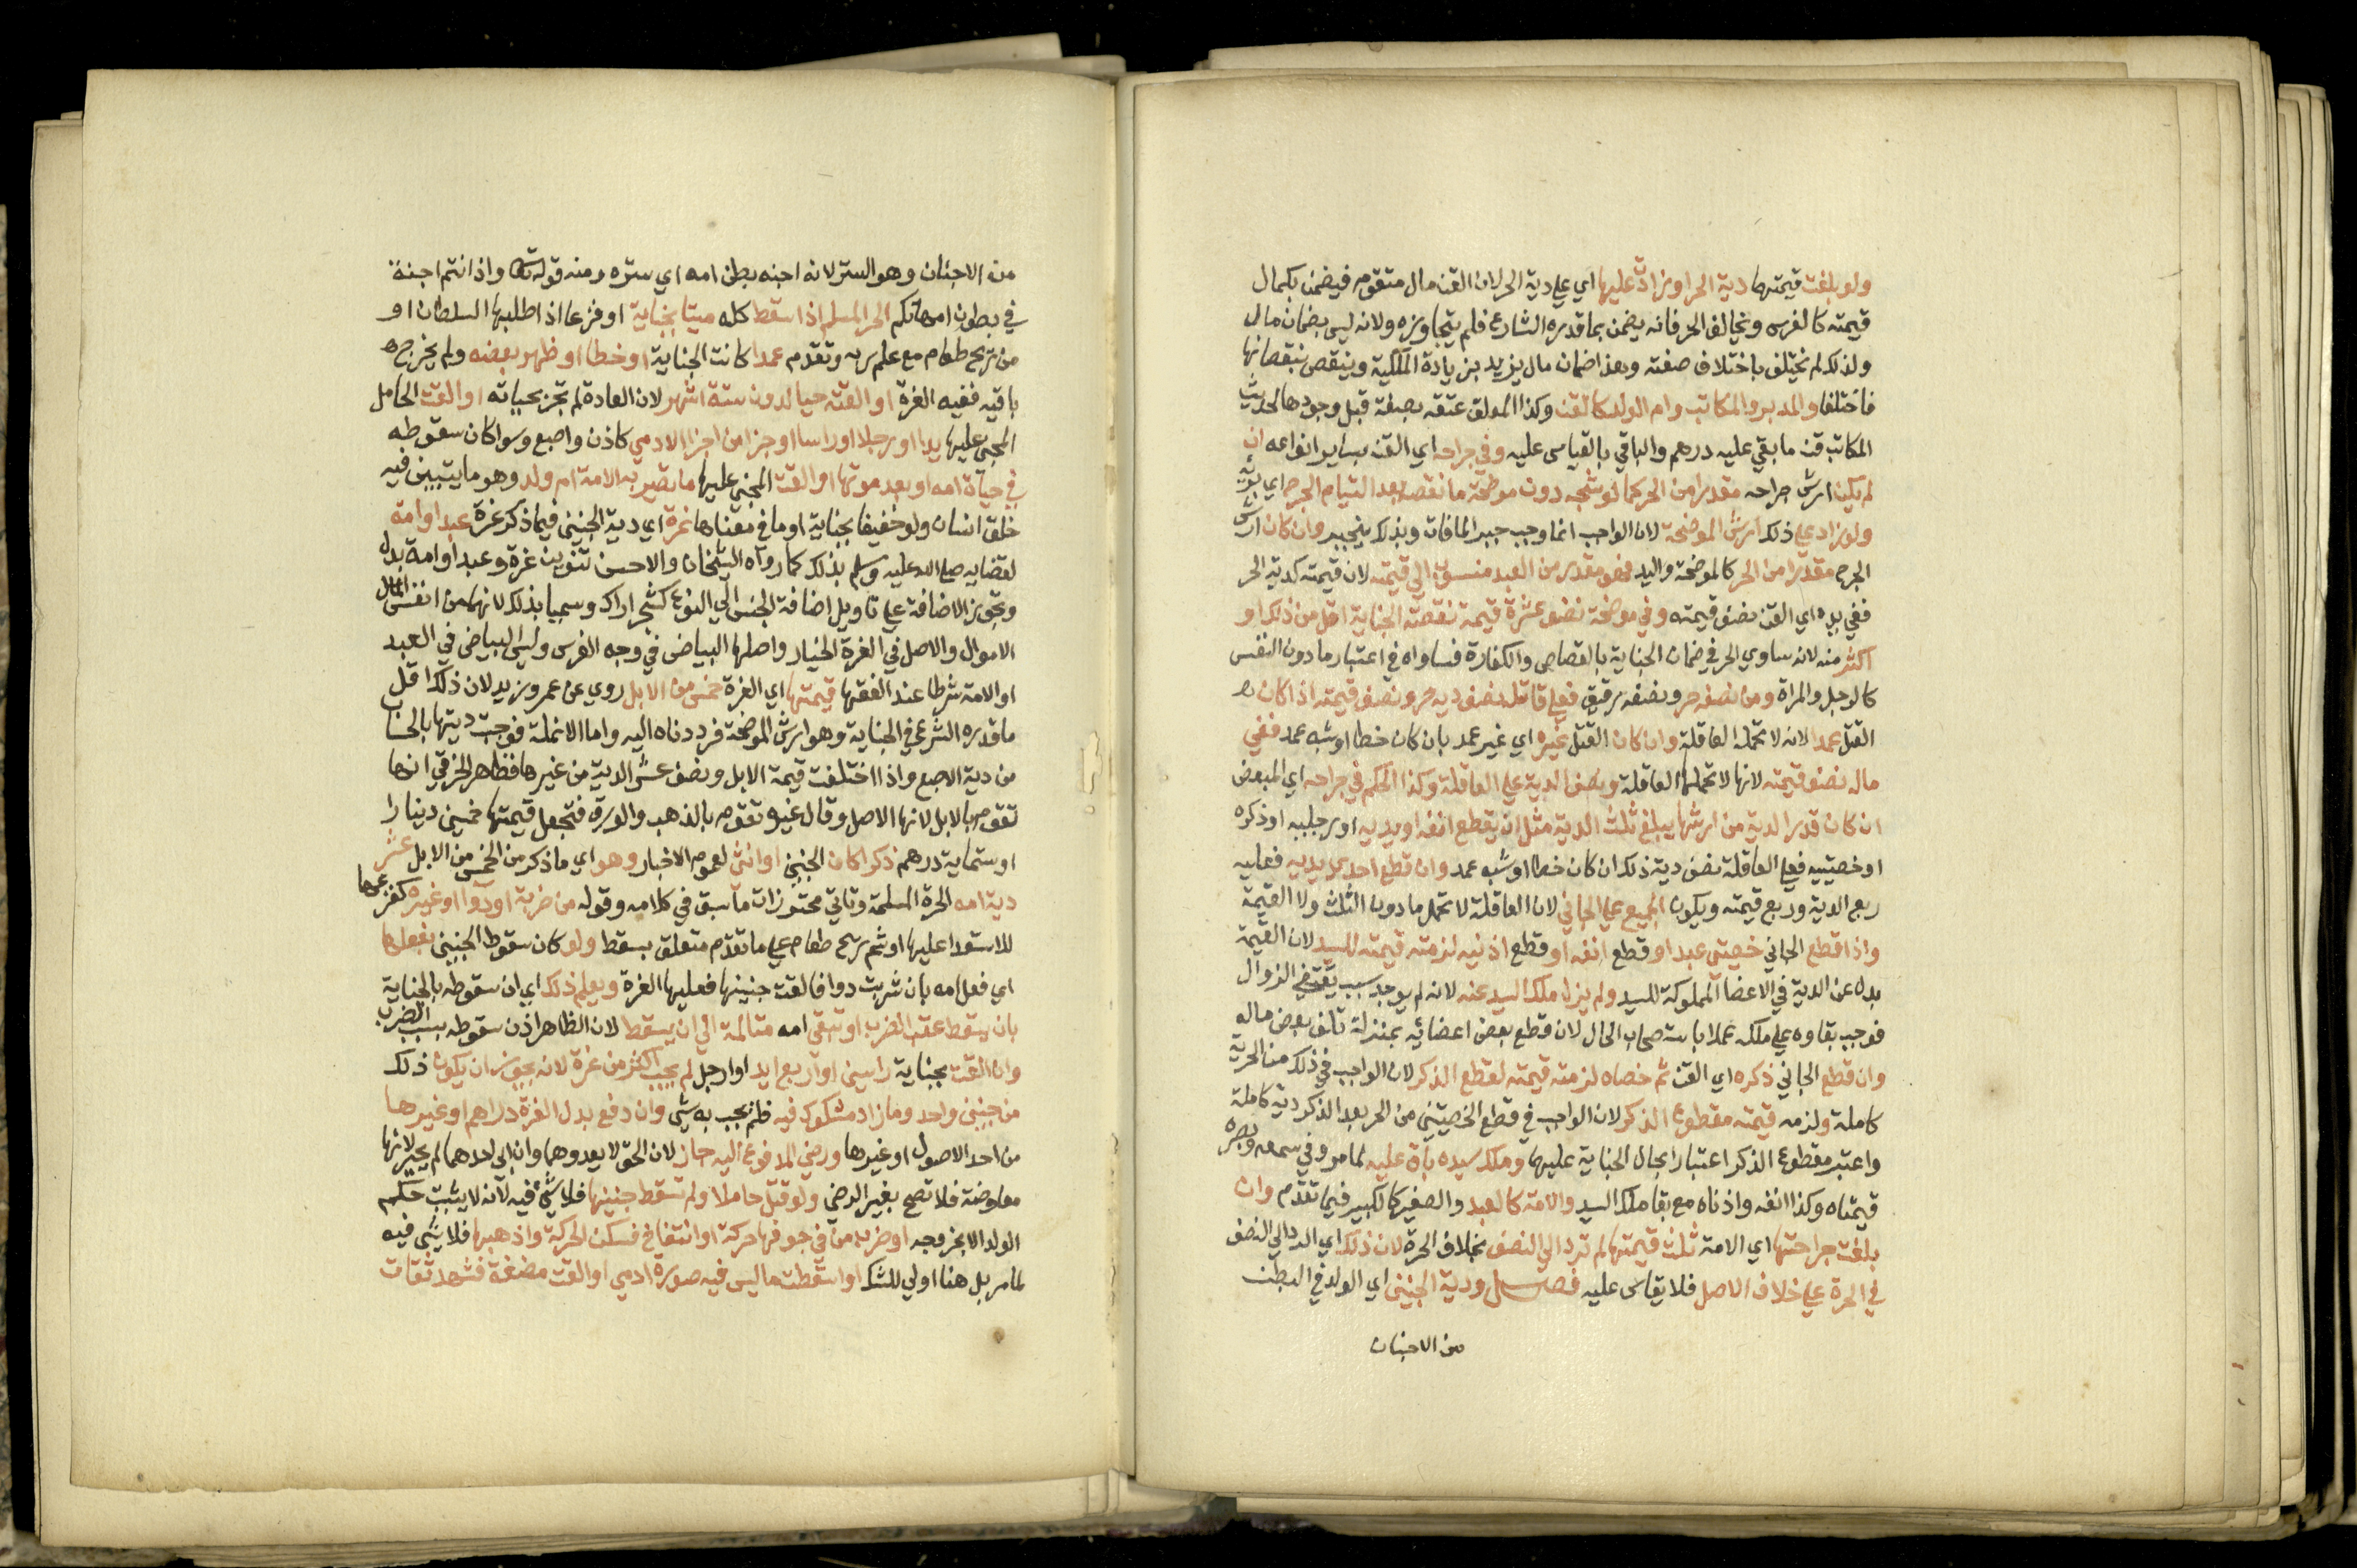 ولو بلغت قيمتها دية الحر او زادت عليها اي علي دية الحر لان القن مال متقوم فيضمن بكمال
قيمته كالفرس ويخالف الحر فانه يضمن بما قدره الشارع فلم يتجاوزه ولانه ليس بضمان مال
ولذلك لم يختلف باختلاف صفته وهذا ضمان مال يزيد بزيادة الملكية وينقص بنقصانها
فاختلفا والمدبر والمكاتب وام الولد كالقن وكذا المعلق عتقه بصفة قبل وجودها لحديث
المكاتب قن ما بقي عليه درهم والباقي بالقياس عليه وفي جراحه اي القن بساير انواعه ان
لم يكن ارش جراحه مقدرا من الحر كما لو شجه دون موضحة ما نقصه بعد التيام الجرح اي بريه
ولو زاد علي ذلك ارش الموضحة لان الواجب انما وجب جبرا لما فات وبذلك ينجبر وان كان ارش
الجرح مقدرا من الحر كالموضحة واليد فهو مقدر من العبد منسوب الي قيمته لان قيمته كدية الحر
ففي يده اي القن نصف قيمته وفي موضحة نصف عشرة قيمة نقصته الجناية اقل من ذلك او
اكثر منه لانه ساوي الحر في ضمان الجناية بالقصاص والكفارة فساواه في اعتبار ما دون النفس
كالرجل والمراة ومن نصفه حر ونصفه رقيق فعلي قاتله نصف ديه حر ونصف قيمته اذا كان
القتل عمدا لانه لا تحمله العاقلة وان كان القتل غيره اي غير عمد بان كان خطا او شبه عمد ففي
ماله نصف قيمته لانها لا تحملها العاقلة ونصف الدية علي العاقلة وكذا الحكم في جراحه اي المبعض
ان كان قدر الدية من ارشها يبلغ ثلث الدية مثل ان يقطع انفه او يديه او رجليه او ذكره
او خصيتيه فعلي العاقلة نصف دية ذلك ان كان خطا او شبه عمد وان قطع احدي يديه فعليه
ربع الدية وربع قيمته ويكون الجميع علي الجاني لان العاقلة لا تحمل ما دون الثلث ولا القيمة
واذا قطع الجاني خصيتي عبد او قطع انفه او قطع اذنيه لزمته قيمته للسيد لان القيمة
بدل عن الدية في الاعضا المملوكة للسيد ولم يزل ملك السيد عنه لانه لم يوجد سبب يقتضي الزوال
فوجب بقاوه علي ملكه عملا باستصحاب الحال لان قطع بعض اعضائه بمنزلة تلف بعض ماله
وان قطع الجاني ذكره اي القن ثم خصاه لزمته قيمته لقطع الذكر لان الواجب في ذلك من الحر دية
كاملة ولزمه قيمته مقطوع الذكر لان الواجب في قطع الخصيتين من الحر بعد الذكر دية كاملة
واعتبر مقطوع الذكر اعتبارا بحال الجناية عليها وملك سيده باق عليه لما مر وفي سمعه وبصره
قيمتاه وكذا انفه واذناه مع بقا ملك السيد والامة كالعبد والصغير كالكبير فيما تقدم وان
بلغت جراحتها اي الامة ثلث قيمتها لم ترد الي النصف بخلاف الحرة لان ذلك اي الرد الي النصف
في الحرة علي خلاف الاصل فلا يقاس عليه فصل ودية الجنين اي الولد في البطن
من الاجنان
من الاجنان وهو الستر لانه اجنه بطن امه اي ستره ومنه قوله تعالى واذ انتم اجنة
في بطون امهاتكم الحر المسلم اذا سقط كله ميتا بجناية او فزعا اذا طلبها السلطان او
من ريح طعام مع علم ربه وتقدم عمدا كانت الجناية او خطا او ظهر بعضه ولم يخرج
باقيه ففيه الغرة او القته حيا لدون ستة اشهر لان العادة لم تجز بحياته او القت الحامل
المجني عليها يدا او رجلا او راسا او جزا من اجزا الادمي كاذن واصبع وسوا كان سقوطه
في حياة امه او بعد موتها او القت المجني عليها ما تصير به الامة ام ولد وهو ما يتبين فيه
خلق انسان ولو خفيفا بجناية او ما في معناها غرة اي دية الجنين فيما ذكر غرة عبد او امة
لقضايه صلى الله عليه وسلم بذلك كما رواه الشيخان والاحسن تنوين غرة وعبد او امة بدل
وتجوز الاضافة علي تاويل اضافة الجنس الي النوع كشجر اراك وسميا بذلك لانهما من انفس المال
الاموال والاصل في الغرة الخيار واصلها البياض في وجه الفرس وليس البياض في العبد
او الامة شرطا عند الفقها قيمتها اي الغرة خمس من الابل روي عن عمر وزيد لان ذلك اقل
ما قدره الشرع في الجناية وهو ارش الموضحة فرددناه اليه واما الانملة فوجبت ديتها بالحساب
من دية الاصبع واذا اختلفت قيمة الابل ونصف عشر الدية من غيرها فظاهر الخرقي انها
تقوم بالابل لانها الاصل وقال غيره تقوم بالذهب والورق فتجعل قيمتها خمسين دينارا
او ستماية درهم ذكرا كان الجنين او انثي لعموم الاخبار وهو اي ما ذكر من الخمس من الابل عشر
دية امه الحرة المسلمة وتاتي محترزات ما سبق في كلامه وقوله من ضربة او دوا او غيره كفزعها
للاستعدا عليها او شم ريح طعام علي ما تقدم متعلق بسقط ولو كان سقوط الجنين بفعلها
اي فعل امه بان شربت دوا فالقت جنينها فعليها الغرة ويعلم ذلك اي ان سقوطه بالجناية
بان يسقط عقب الضرب او تبقي امه متالمة الي ان يسقط لان الظاهر اذن سقوطه بسبب الضرب
وان القت بجناية راسين او اربع ايد او ارجل لم يجب اكثر من غرة لانه يجوز ان يكون ذلك
من جنين واحد وما زاد مشكوك فيه فلم يجب به شي وان دفع بدل الغرة دراهم او غيرها
من احد الاصول او غيرها ورضي المدفوع اليه جاز لان الحق لا يعدوهما وان ابي احدهما لم يجبر لانها
معاوضة فلا تصح بغير الرضي ولو قتل حاملا ولم تسقط جنينها فلا شي فيه لانه لا يثبت حكم
الولد الا بخروجه او ضرب من في جوفها حركة او انتفاخ فسكن الحركة واذهبها فلا شي فيه
لما مر بل هنا اولي للشك او اسقطت ما ليس فيه صورة ادمي او القت مضغة فشهد ثقات